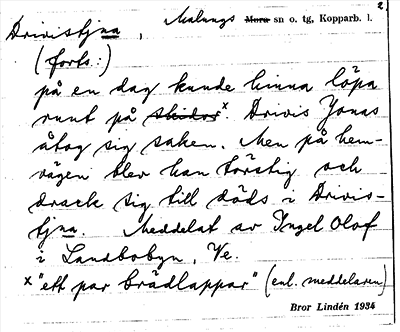 2
Drivistjna, Malungs Mora sn o. tg, Kopparb. l.
(forts.:)
på en dag kunde hinna löpa
runt på skidor x. Drivis Jonas
åtog sig saken. Men på hem-
vägen blev han törstig och
drack sig till döds i Drivis-
tjna. Meddelat av Ingel Olof
i Landbobyn, Ve.
x "ett par brädlappar" (enl. meddelaren)
Bror Lindén 1934